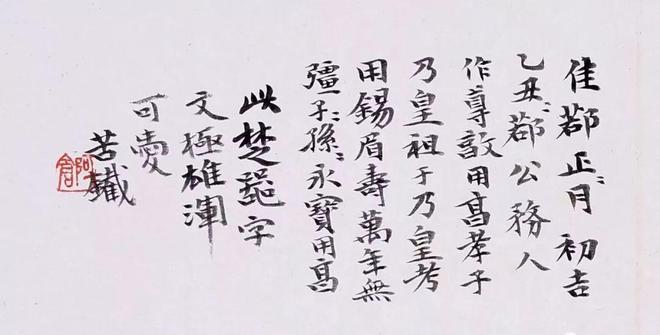 隹鄀正二月初吉
乙丑二鄀公務人
作尊敦用亯孝于
乃皇祖于乃皇考
用錫眉壽萬年無
疆子二孫二永寶用亯
此楚器字
文極雄渾
可愛
苦鐵
阿倉